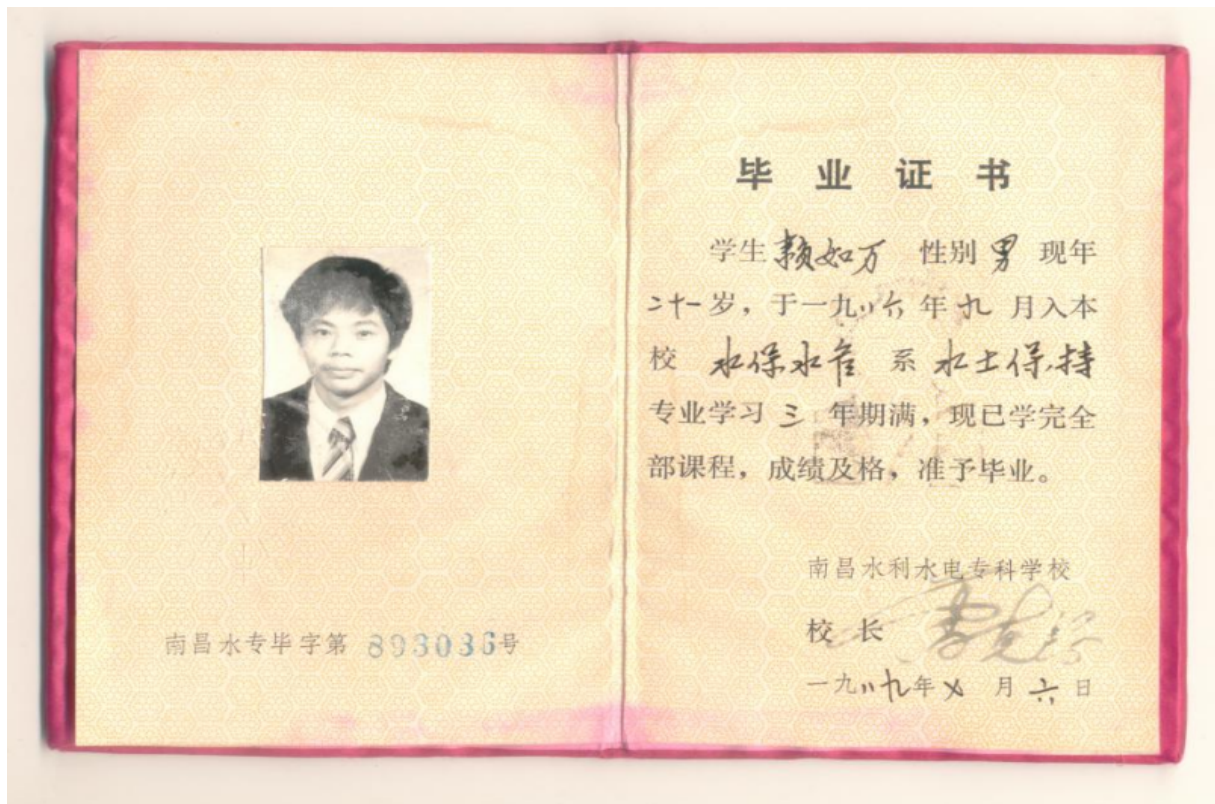 南昌水专毕字第 893036号
毕业证书
学生赖如万 性别男 现年
二十一岁，于一九八六年九月入本
校 水保水 系 水土保持
专业学习三年期满，现已学完全
部课程，成绩及格，准予毕业。
南昌水利水电专科学校
校长
一九八九年七月六日